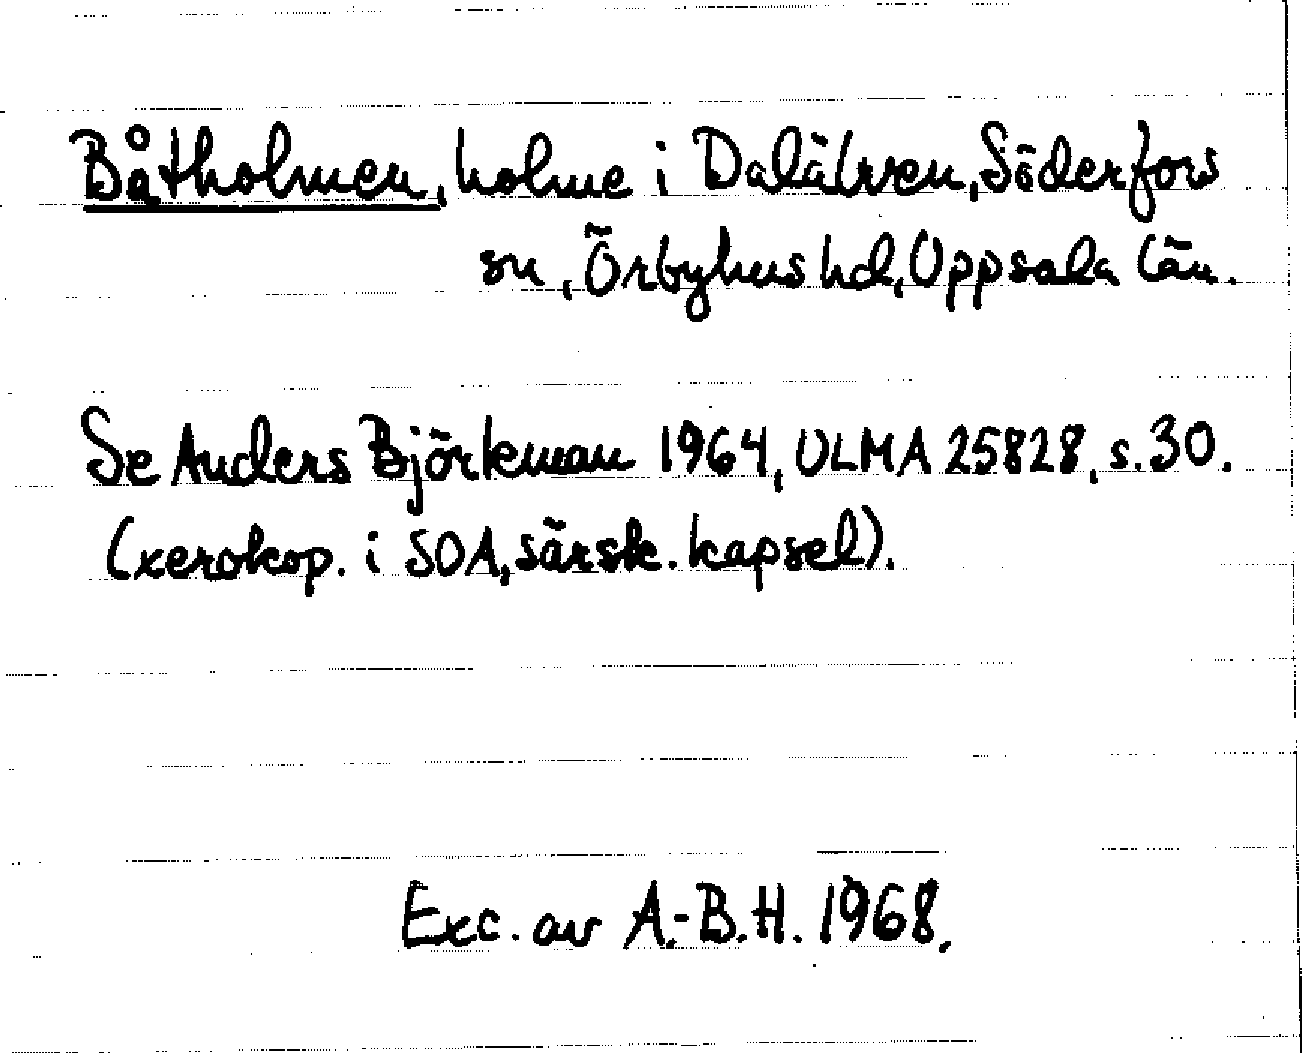 Båtholmen, holme i Dalälven, Söderfors
sn, Örbyhus hd, Uppsala län.
Se Anders Björkman 1964, ULMA 25828, s. 30.
(xerokop. i SOA, särsk. kapsel).
Exc. av A.-B.H. 1968.